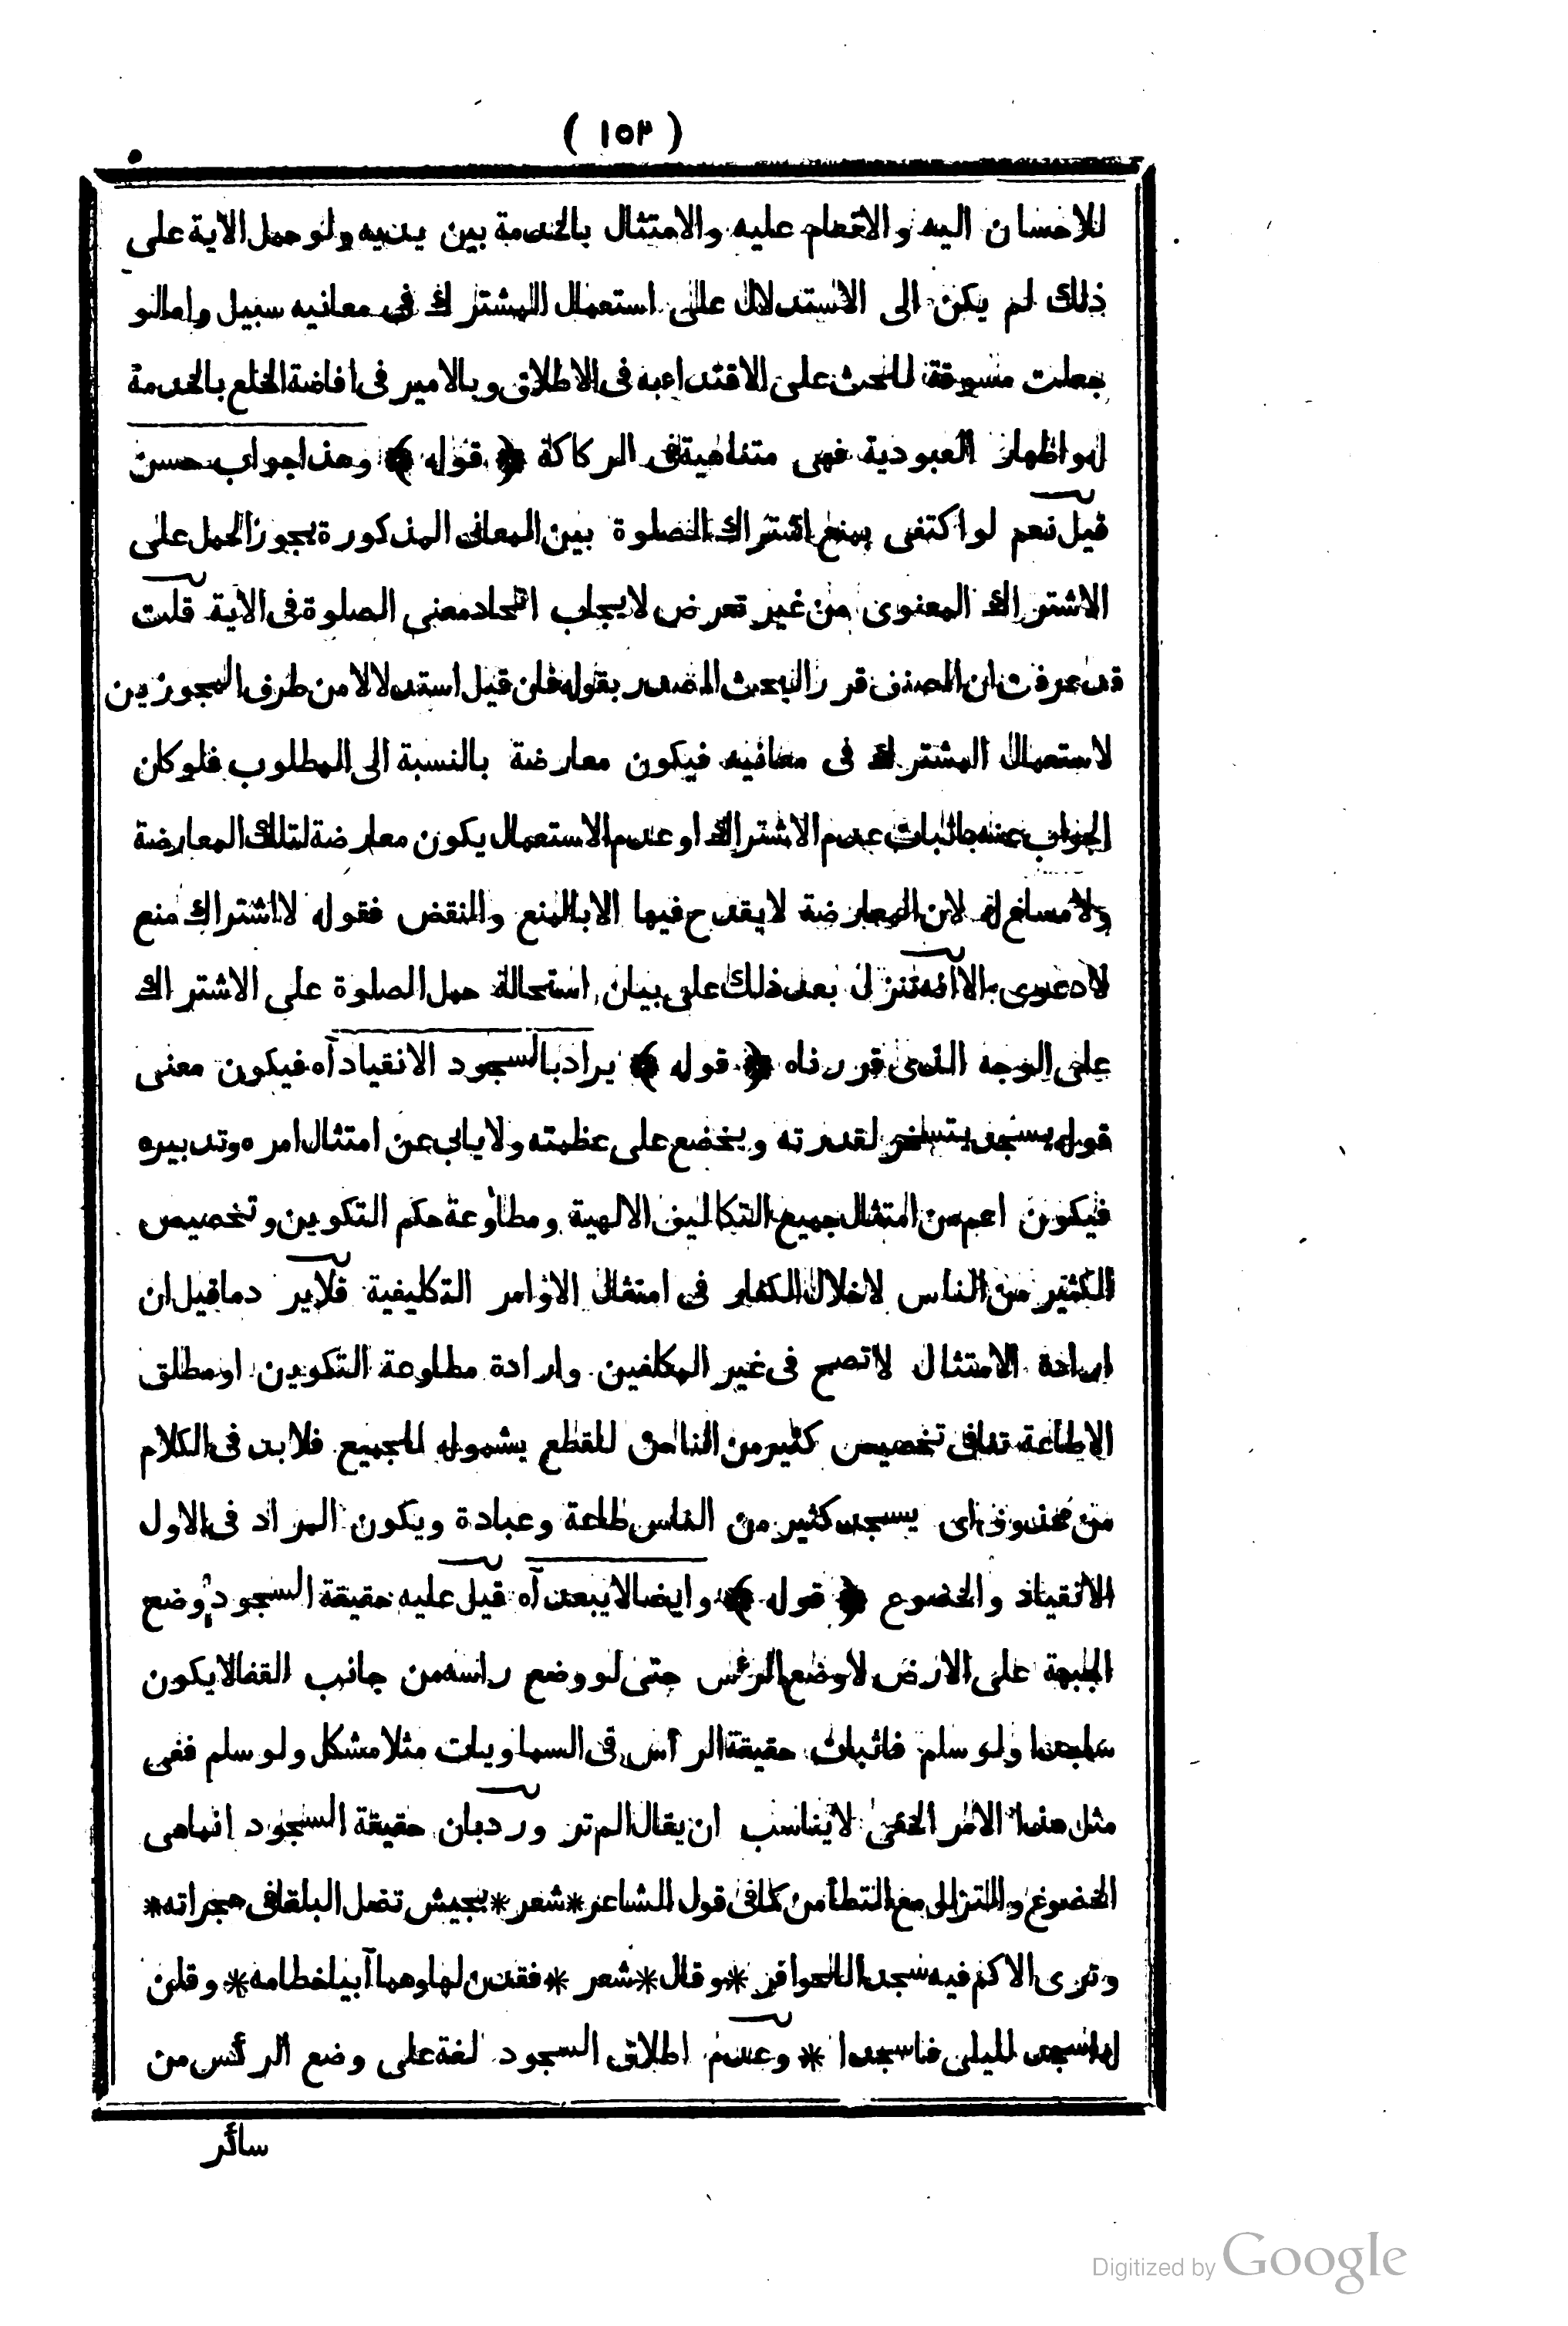 ( ١٥٣ )
للاحسان اليه والانعام عليه والامتثال بالخدمة بين يديه ولو حمل الاية على
ذلك لم يكن الى الاستدلال على استعمال المشترك فى معانيه سبيل واما لو
جعلت مسوقة للحث على الاقتداء به فى الاطلاق وبالامير فى افاضة الخلع بالخدمة
او اظهار العبودية فهى متناهية فى الركاكة ﴿ قوله ﴾ وهذا جواب حسن
قيل نعم لو اكتفى بمنع اشتراك الصلوة بين المعانى المذكورة يجوز الحمل على
الاشتراك المعنوى من غير تعرض لايجاب اتحاد معنى الصلوة فى الاية قلت
قد عرفت ان المصنف قرر البحث المصدر بقوله فان قيل استدلالا من طرف المجوزين
لاستعمال المشترك فى معانيه فيكون معارضة بالنسبة الى المطلوب فلو كان
الجواب عنه باثبات عدم الاشتراك او عدم الاستعمال يكون معارضة لتلك المعارضة
ولا مساغ له لان المعارضة لا يقدح فيها الا بالمنع والنقض فقوله لا اشتراك منع
لا دعوى الا انه تنزل بعد ذلك على بيان استحالة حمل الصلوة على الاشتراك
على الوجه الذى قررناه ﴿ قوله ﴾ يراد بالسجود الانقياد آه فيكون معنى
قوله يسجد يتسخر لقدرته ويخضع على عظمته ولا يابى عن امتثال امره وتدبيره
فيكون اعم من امتثال جميع التكاليف الالهية ومطاوعة حكم التكوين وتخصيص
الكثير من الناس لاخلال الكفار فى امتثال الاوامر التكليفية فلا يرد ما قيل ان
ارادة الامتثال لا تصح فى غير المكلفين وارادة مطاوعة التكوين او مطلق
الاطاعة تنافى تخصيص كثير من الناس للقطع بشموله للجميع فلا بد فى الكلام
من محذوف اى يسجد كثير من الناس طاعة وعبادة ويكون المراد فى الاول
الانقياد والخضوع ﴿ قوله ﴾ وايضا لا يبعد آه قيل عليه حقيقة السجود وضع
الجبهة على الارض لا وضع الرئس حتى لو وضع راسه من جانب القفا لا يكون
ساجدا ولو سلم فاثبات حقيقة الرأس فى السماويات مثلا مشكل ولو سلم ففى
مثل هذا الامر الخفى لا يناسب ان يقال الم تر ورد بان حقيقة السجود انما هى
الخضوع والتزلل مع التطأمن كما فى قول الشاعر * شعر * بجيش تضل البلقا فى حجراته *
وترى الاكم فيه سجدا للحوافر * وقال * شعر * فقدن لها وهما آبيا خطامه * وقلن
له اسجد لليلى فاسجدا * وعدم اطلاق السجود لغة على وضع الرئس من
سائر
Digitized by Google